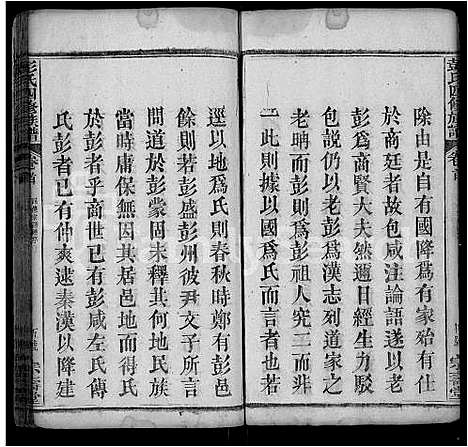 彭氏四修族譜
卷首
除由是因有國降爲有家殆有仕
於商廷者故包咸注論語遂以老
彭爲商賢大夫然邇日經生力攻
包說仍以老彭爲漢志列道家之
老聃而於彭祖人老究二而非
一此則據以國爲氏而言者也有
逕以地爲氏則春秋時鄭有彭邑
餘則若彭盛彭州彼尹文子所言
問道於彭蒙固未釋其何地民族
當時庸保無因其居邑地而得氏
於彭者乎商世之有彭咸左氏傳
氏彭者已有仲爽逮秦漢以降建
彭氏四修族譜
卷首